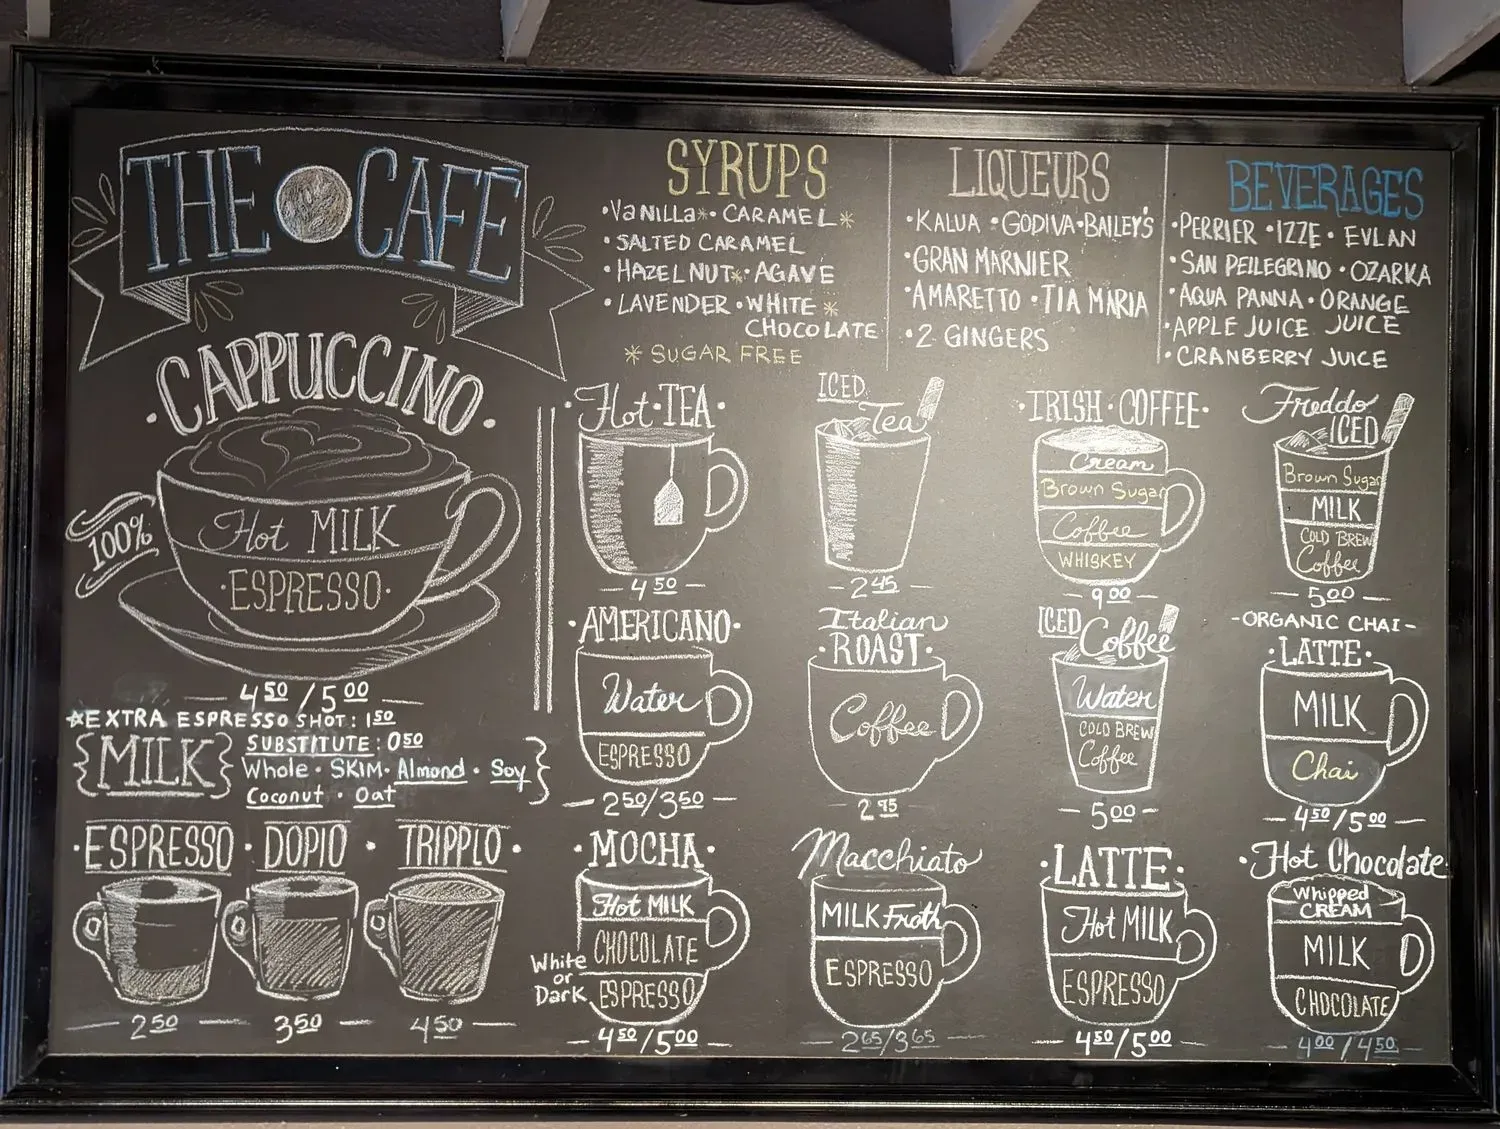 THE CAFÉ
CAPPUCCINO
100%
Hot MILK
ESPRESSO
4 50 / 5 00
☆EXTRA ESPRESSO SHOT: 1 50
{MILK}
SUBSTITUTE: 0 50
Whole · SKIM · Almond · Soy
Coconut · Oat
· ESPRESSO · DOPIO · TRIPPLO ·
2 50
3 50
4 50
SYRUPS
· VANILLA* · CARAMEL*
· SALTED CARAMEL
· HAZELNUT* · AGAVE
· LAVENDER · WHITE *
CHOCOLATE
* SUGAR FREE
LIQUEURS
· KALUA · GODIVA · BAILEY'S
· GRAN MARNIER
· AMARETTO · TIA MARIA
· 2 GINGERS
BEVERAGES
· PERRIER · IZZE · EVIAN
· SAN PELLEGRINO · OZARKA
· AQUA PANNA · ORANGE
· APPLE JUICE JUICE
· CRANBERRY JUICE
· Hot · TEA ·
4 50
ICED
Tea
2 45
· IRISH · COFFEE ·
Cream
Brown Sugar
Coffee
WHISKEY
9 00
Freddo
ICED
Brown Sugar
MILK
COLD BREW
Coffee
5 00
· AMERICANO ·
Water
ESPRESSO
2 50 / 3 50
Italian
· ROAST ·
Coffee
2 95
ICED
Coffee
Water
COLD BREW
Coffee
5 00
- ORGANIC CHAI -
· LATTE ·
MILK
Chai
4 50 / 5 00
· MOCHA ·
Hot MILK
CHOCOLATE
White
or
Dark
ESPRESSO
4 50 / 5 00
Macchiato
MILK Froth
ESPRESSO
2 65 / 3 65
· LATTE ·
Hot MILK
ESPRESSO
4 50 / 5 00
· Hot Chocolate
Whipped
CREAM
MILK
CHOCOLATE
4 00 / 4 50